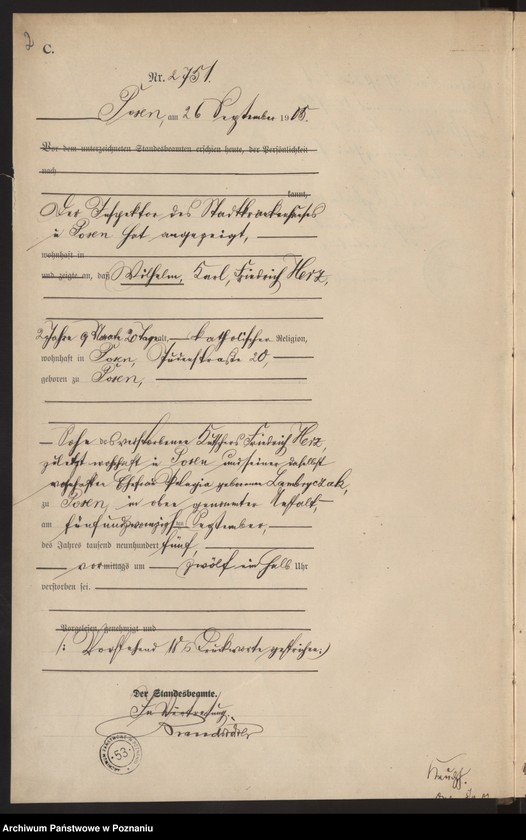 2
C.
Nr. 2751.
Posen, am 26 September 1905.
Vor dem unterzeichneten Standesbeamten erschien heute, der Persönlichkeit
nach
kannt,
Der Inspektor des Stadtkrankenhauses
in Posen hat angezeigt,
wohnhaft in
und zeigte an, daß Wilhelm, Karl, Friedrich Herz,
2 Jahre 9 Monate 20 Tage alt, katholischer Religion,
wohnhaft in Posen, 20,
geboren zu Posen,
Sohn des verstorbenen Kutschers Friedrich Herz,
zuletzt wohnhaft in Posen und seiner daselbst
wohnhaften Ehefrau Pelagia geborenen
zu Posen, in oben genannter Anstalt,
am fünfundzwanzigsten September,
des Jahres tausend neunhundert fünf,
vormittags um zwölf ein halb Uhr
verstorben sei.
Vorgelesen, genehmigt und
/: Vorstehend Druckworte gestrichen :/
Der Standesbeamte.
In Vertretung.
53
Archiwum Państwowe w Poznaniu